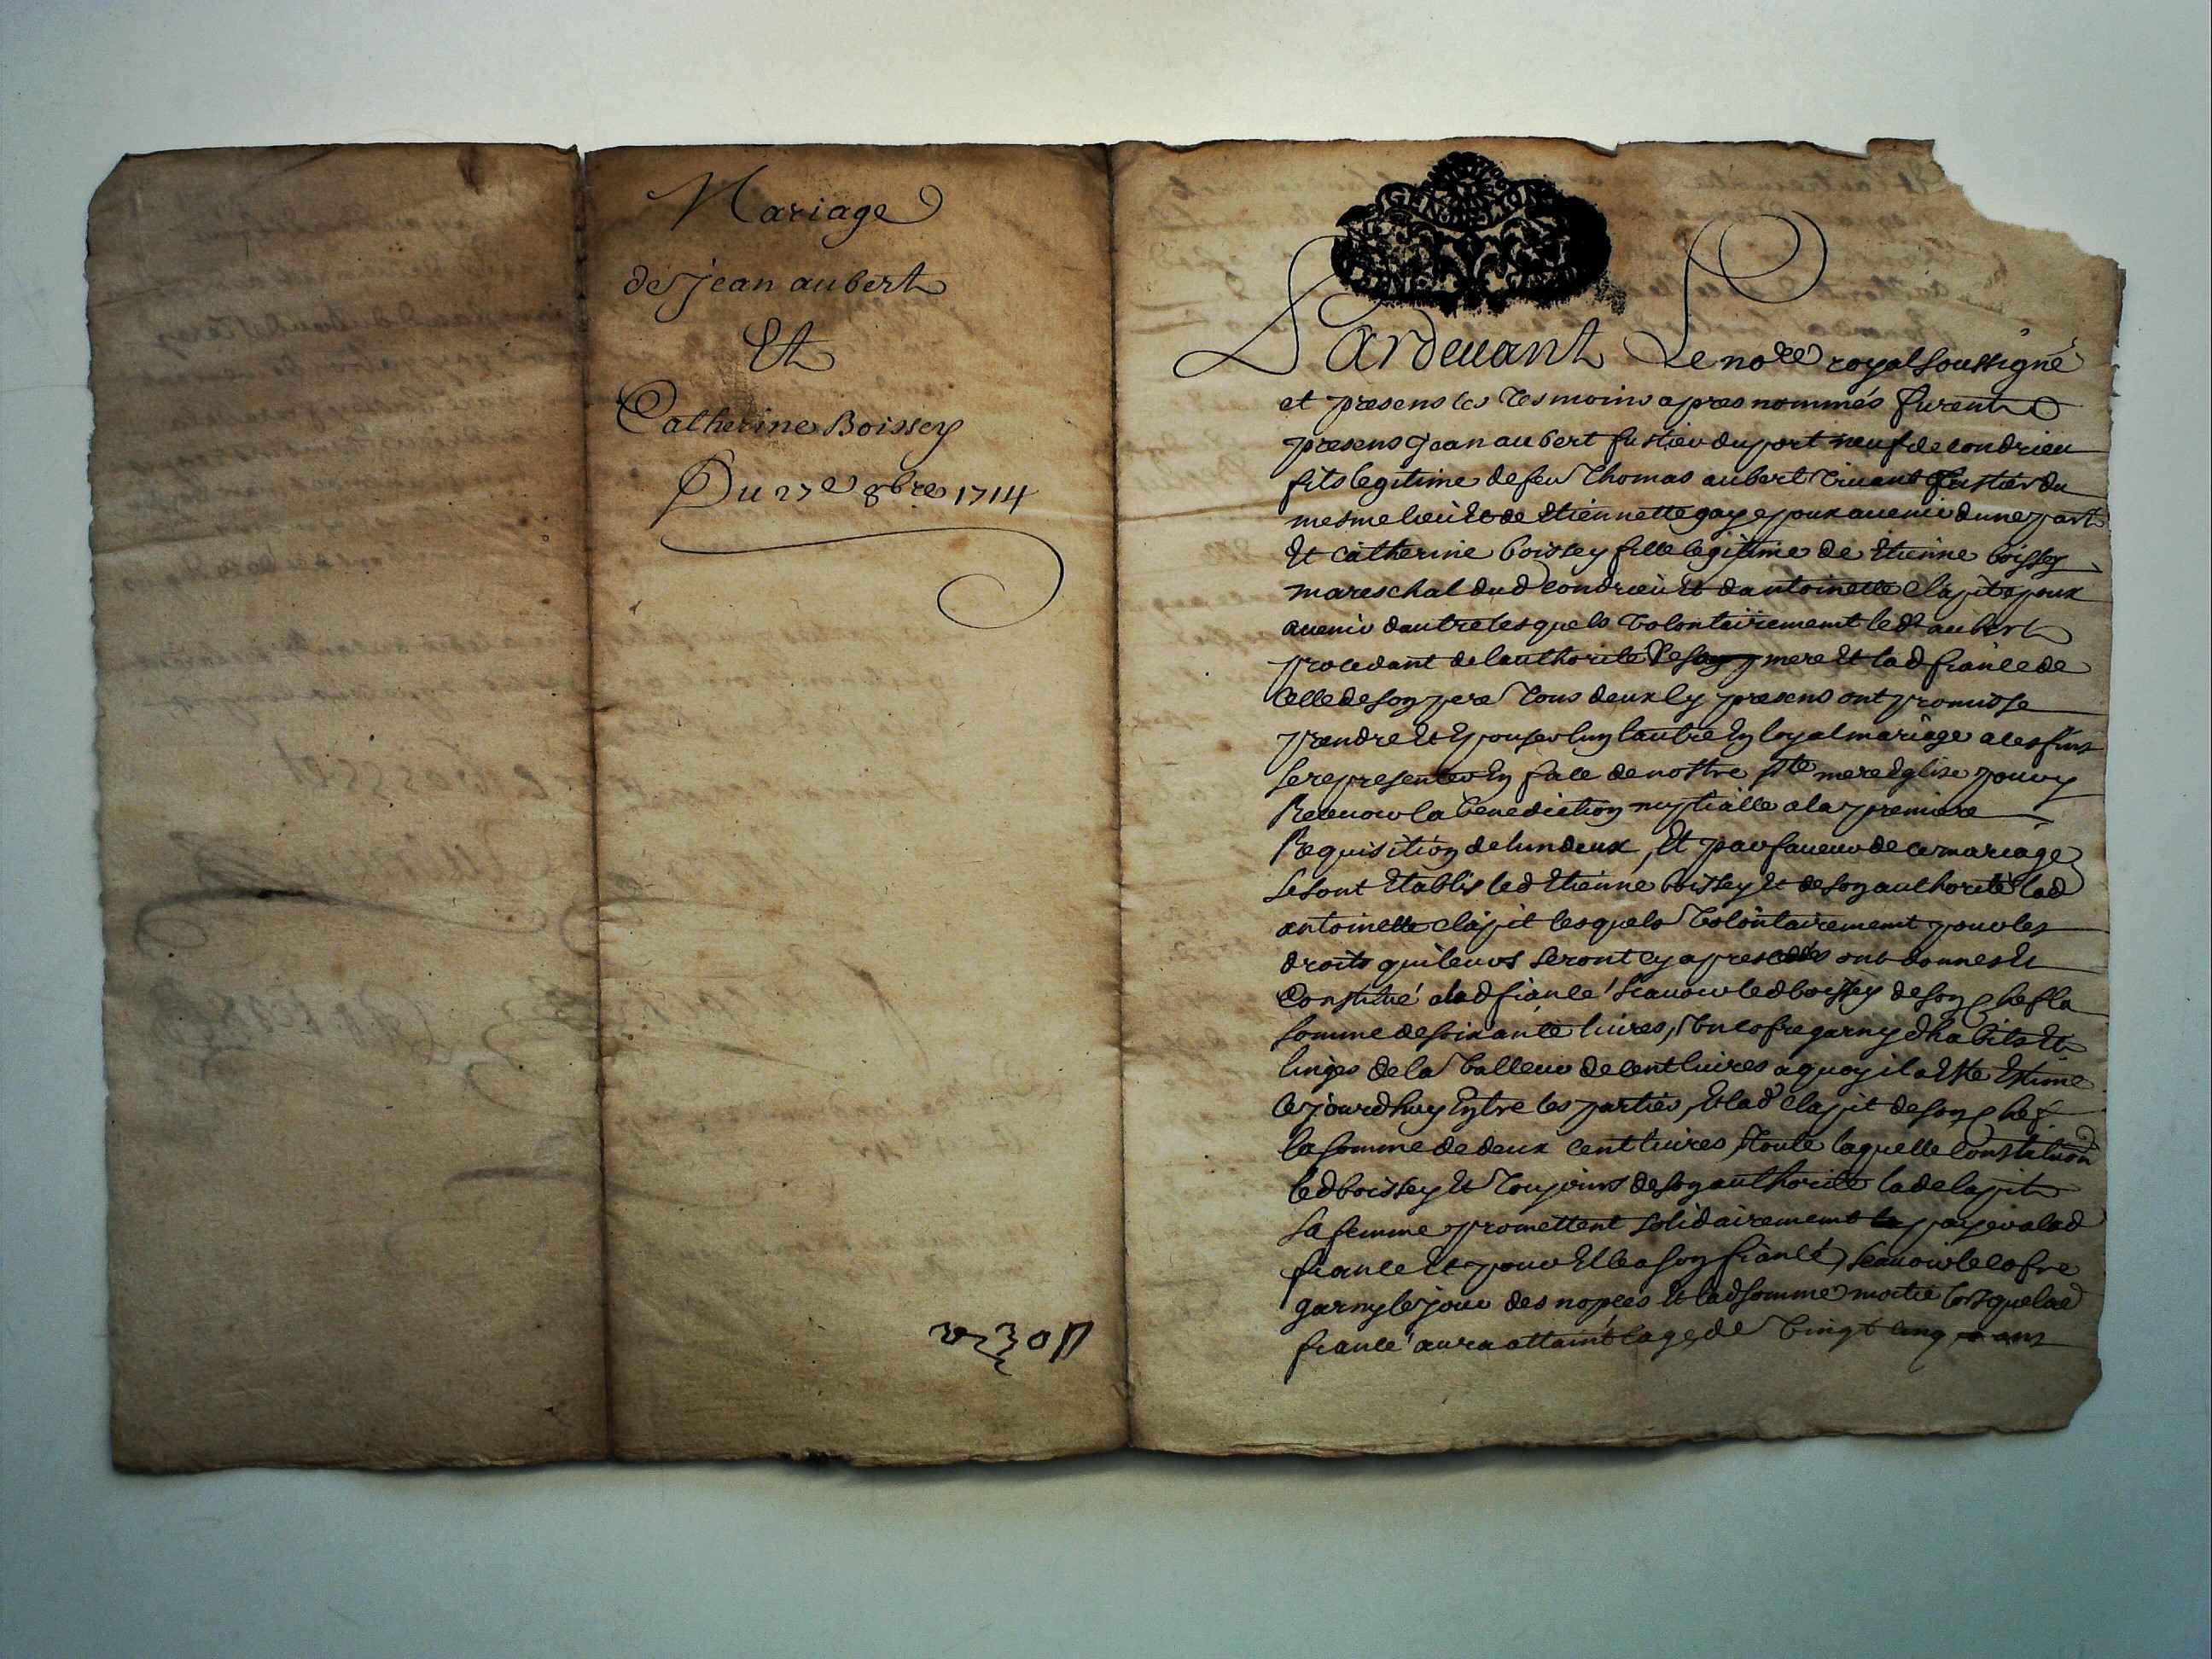 Mariage
de Jean aubert
Et
Catherine Boissey
Du 27e 8bre 1714
Pardeuant Le nore royal soussigné
et presens les tesmoins apres nommés furent
presens jean aubert fustier du port neuf de condrieu
fils legitime de feu Thomas aubert viuant fustier du
mesme lieu et de Etiennette gaye pour auenir dune part
Et Catherine boissey fille legitime de Etienne boissey
mareschal dud condrieu et dantoinette Clapit pour
auenir dautre lesquels volontairement led aubert
procedant de lauthorité de sa mere et lad fiancée de
celle de son pere tous deux Cy presens ont promis se
prendre et Epouser luy lautre En loyal mariage a ces fins
se representer En face de nostre ste mere Eglise pour y
Receuoir la benediction nuptialle a la premiere
Requisition de lun deux, Et par faueur de ce mariage
se sont Etablis led Etienne boissey et de son authorité lad
antoinette clapit lesquels volontairement pour les
droits qui leurs seront cy apres cedés ont donnes Et
Constitué a lad fiancé scauoir led boissey de son chef la
somme de soixante liures, vn cofre garny dhabits et
linges de la valleur de cent liures a quoy il a Esté Estimé
ce jourdhuy Entre les parties, Et lad clapit de son chef
la somme de deux cent liures, toute laquelle constituon
led boissey Et toujours de son authorité lad clapit
sa femme promettent solidairement payer a lad
fiancé Et pour Elle a son fiancé, scauoir le cofre
garny le jour des nopces Et lad somme moitié lorsque lad
fiancé aura attaint lage de vingt cinq ans